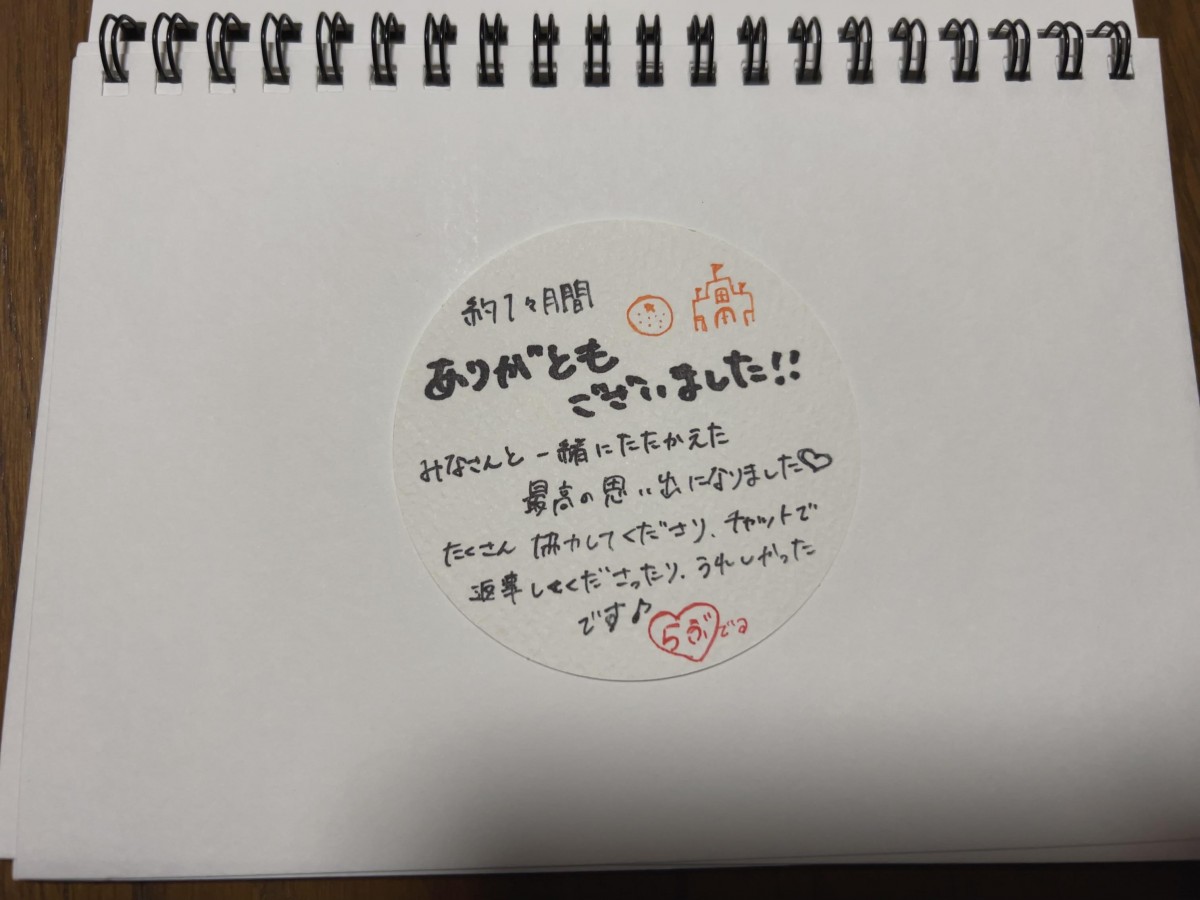 約1ヶ月間
ありがとも
ございました!!
みなさんと一緒にたたかえた
最高の思い出になりました♡
たくさん協力してくださり、チャットで
返事してくださったり、うれしかった
です♪
らぶ